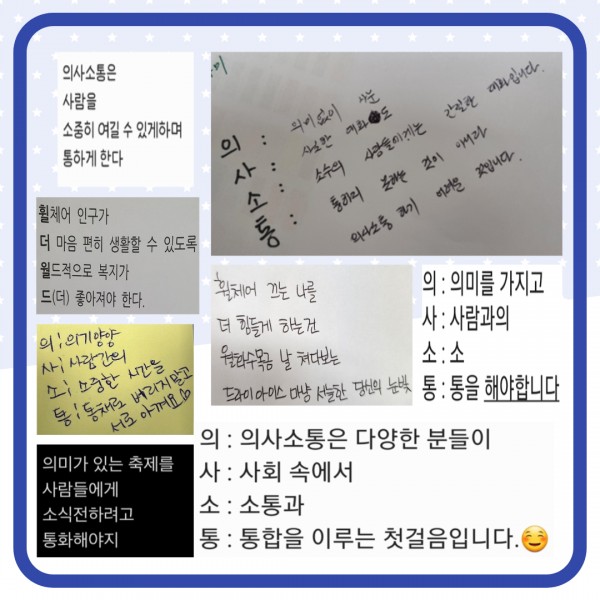 의사소통은
사람을
소중히 여길 수 있게하며
통하게 한다
의미없이 나눈
의 :
사소한 대화도 간절한 대화입니다.
사 :
소수의 사람들에게는
소 :
통하지 못하는 것이 아니라
통 :
의사소통 하기 어려운 것입니다.
휠체어 인구가
더 마음 편히 생활할 수 있도록
월드적으로 복지가
드(더) 좋아져야 한다.
휠체어 끄는 나를
더 힘들게 하는건
월화수목금 날 쳐다보는
드라이아이스 마냥 서늘한 당신의 눈빛
의 : 의미를 가지고
사 : 사람과의
소 : 소
통 : 통을 해야합니다
의 ; 의기양양
사 ; 사람간의
소 ; 소중한 시간을
통 ; 통째로 버리지말고
서로 아껴요
의미가 있는 축제를
사람들에게
소식전하려고
통화해야지
의 : 의사소통은 다양한 분들이
사 : 사회 속에서
소 : 소통과
통 : 통합을 이루는 첫걸음입니다.😊